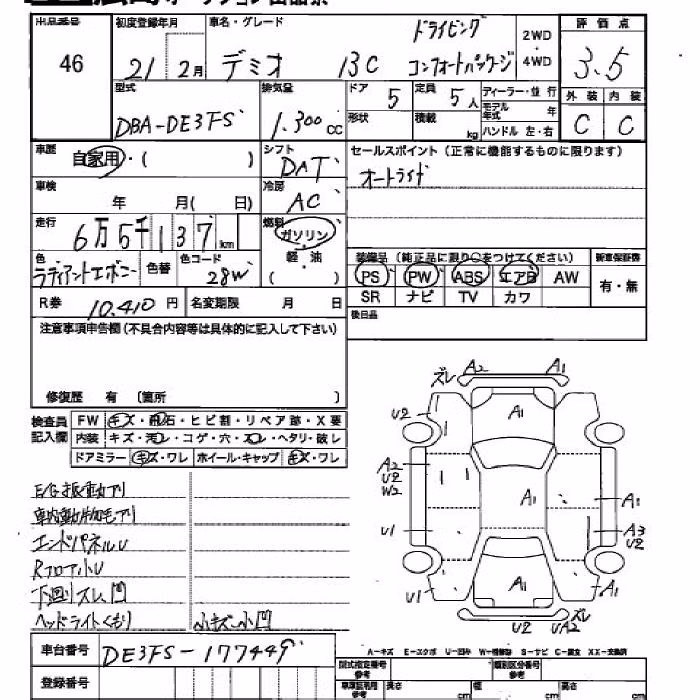 出品番号
46
初度登録年月
21 2月
車名・グレード
デミオ 13C
ドライビング
コンフォートパッケージ
2WD
・
4WD
評価点
3.5
型式
DBA-DE3FS
排気量
1.300cc
ドア
5
定員
5人
ディーラー・並行
モデル年式 年
形状
積載 kg
ハンドル 左・右
外装
C
内装
C
車歴
自家用・( )
シフト
DAT
セールスポイント(正常に機能するものに限ります)
オートライト
車検
年 月( 日)
冷房
AC
走行
6万5千137km
燃料
ガソリン
・
軽・油
( )
色
ラディアントエボニー
色替
色コード
28W
装備品(純正品に限り○をつけてください)
PS PW ABS エアB AW
SR ナビ TV カワ
新車保証書
有・無
後日品
R券 10.410円
名変期限 月 日
注意事項申告欄(不具合内容等は具体的に記入して下さい)
修復歴 有 〔箇所 〕
検査員記入欄
FW キズ・飛石・ヒビ割・リペア跡・X要
内装 キズ・汚レ・コゲ・穴・スレ・ヘタリ・破レ
ドアミラー キズ・ワレ ホイール・キャップ キズ・ワレ
E/G振動アリ
車内動物毛アリ
エンドパネルU
RフロアハU
下回りズレ、凹
ヘッドライトくもり 小キズ・小凹
ズレ A2 A1
U2 A1
A2
U2
W2
A1 A1
U1 A3
U2
U1 A1 A1
U2 UA2 ズレ
車台番号
DE3FS-177449
登録番号
A-キズ E-エクボ U-凹み W-補修跡 S-サビ C-腐食 XX-交換済
型式指定番号 類別区分番号
長さ cm 幅 cm 高さ cm